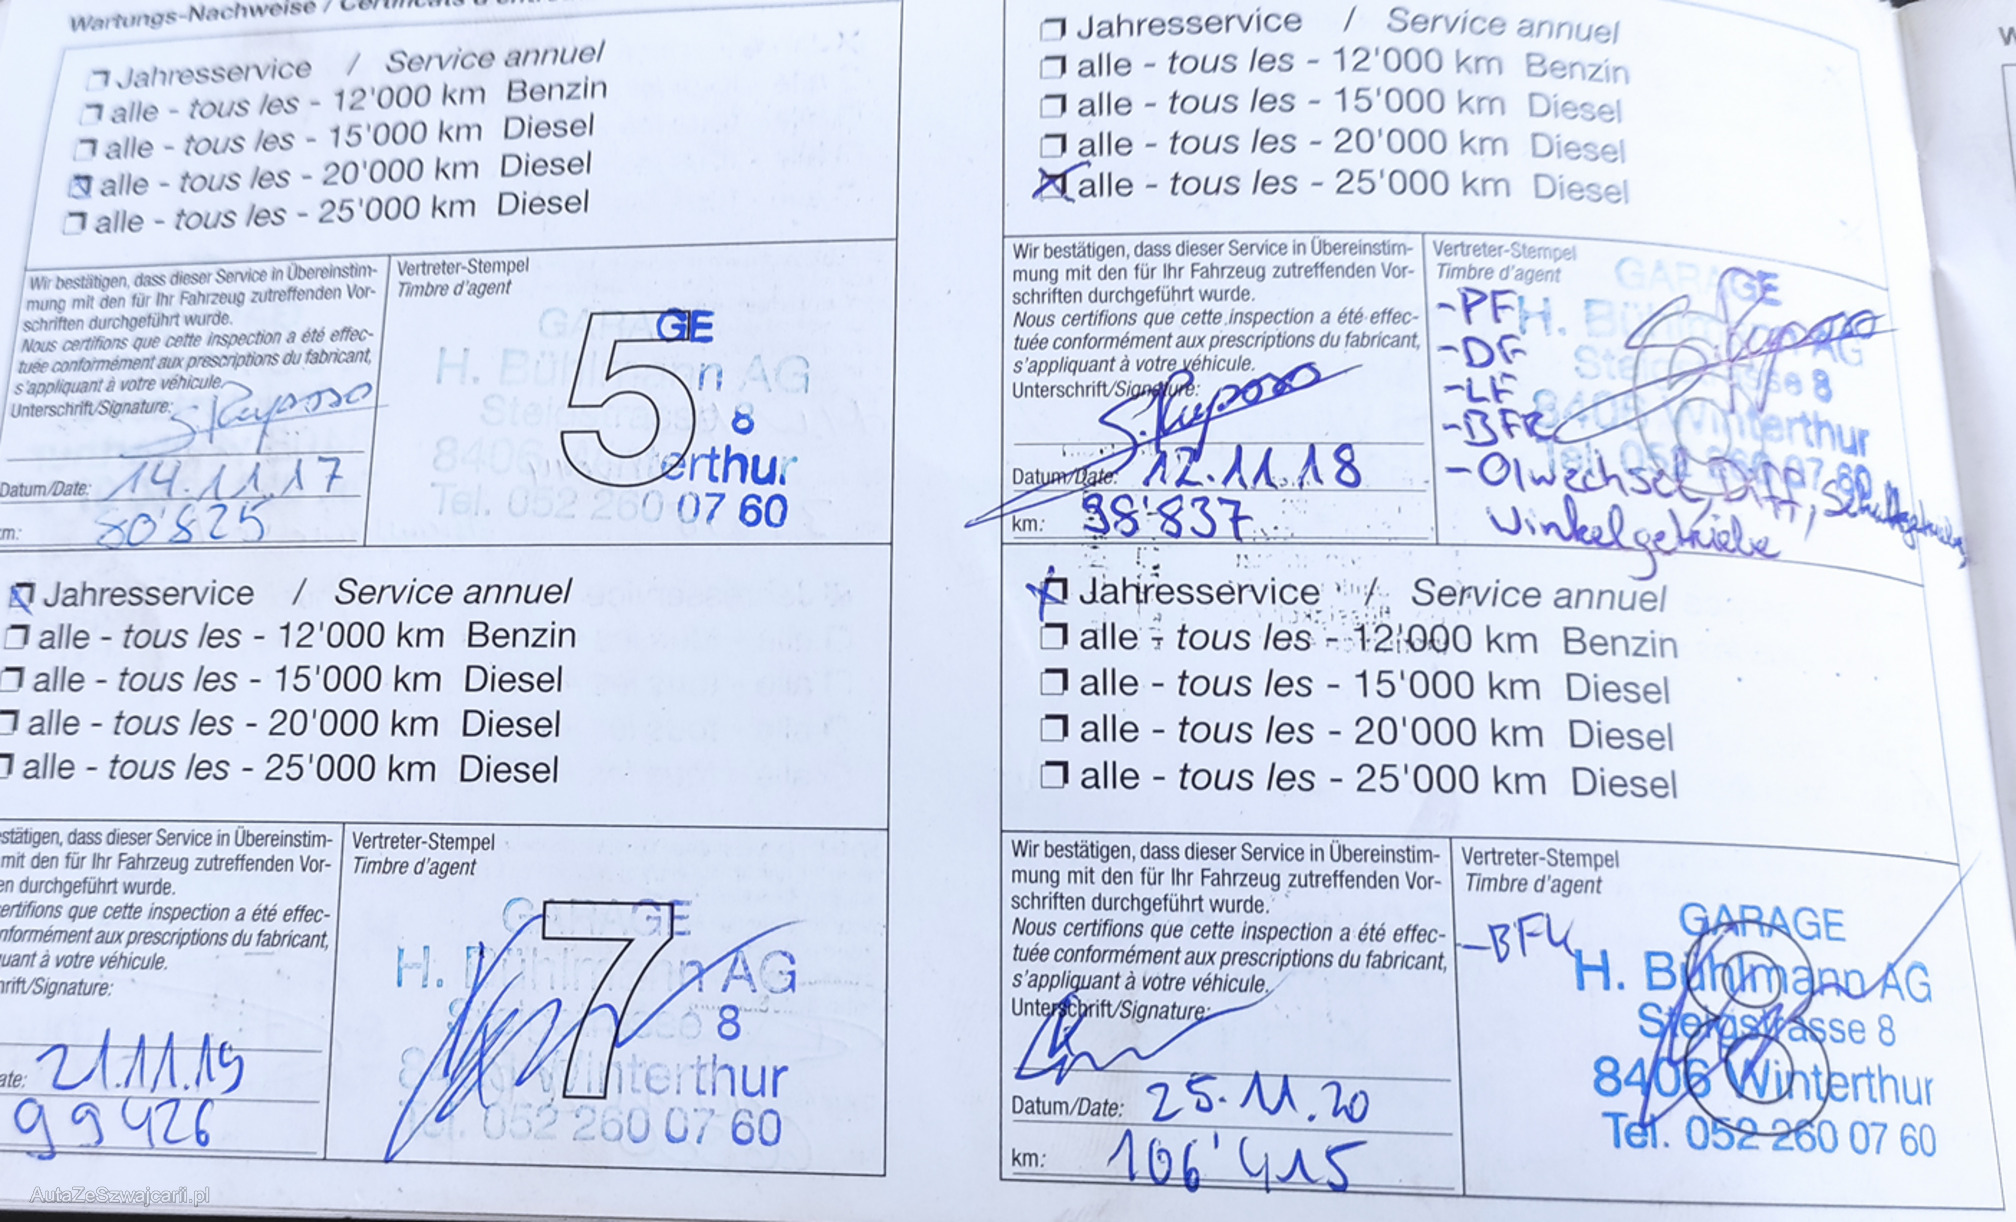 Wartungs-Nachweise /
Jahresservice / Service annuel
alle - tous les - 12'000 km Benzin
alle - tous les - 15'000 km Diesel
alle - tous les - 20'000 km Diesel
alle - tous les - 25'000 km Diesel
Wir bestätigen, dass dieser Service in Übereinstim-
mung mit den für Ihr Fahrzeug zutreffenden Vor-
schriften durchgeführt wurde.
Nous certifions que cette inspection a été effec-
tuée conformément aux prescriptions du fabricant,
s'appliquant à votre véhicule.
Unterschrift/Signature: S. Raposo
Datum/Date: 14.11.17
m: 80'825
Vertreter-Stempel
Timbre d'agent
5
GARAGE
H. Bühlmann AG
Steigstrasse 8
8406 Winterthur
Tel. 052 260 07 60
Jahresservice / Service annuel
alle - tous les - 12'000 km Benzin
alle - tous les - 15'000 km Diesel
alle - tous les - 20'000 km Diesel
alle - tous les - 25'000 km Diesel
Wir bestätigen, dass dieser Service in Übereinstim-
mung mit den für Ihr Fahrzeug zutreffenden Vor-
schriften durchgeführt wurde.
Nous certifions que cette inspection a été effec-
tuée conformément aux prescriptions du fabricant,
s'appliquant à votre véhicule.
Unterschrift/Signature: S. Raposo
Datum/Date: 12.11.18
km: 98'837
Vertreter-Stempel
Timbre d'agent
GARAGE
H. Bühlmann AG
Steigstrasse 8
8406 Winterthur
Tel. 052 260 07 60
6
-PF
-DF
-LF
-BFK
-Ölwechsel, Diff, Schaltgetriebe,
Winkelgetriebe
Jahresservice / Service annuel
alle - tous les - 12'000 km Benzin
alle - tous les - 15'000 km Diesel
alle - tous les - 20'000 km Diesel
alle - tous les - 25'000 km Diesel
stätigen, dass dieser Service in Übereinstim-
mit den für Ihr Fahrzeug zutreffenden Vor-
en durchgeführt wurde.
ertifions que cette inspection a été effec-
nformément aux prescriptions du fabricant,
uant à votre véhicule.
hrift/Signature:
ate: 21.11.19
99426
Vertreter-Stempel
Timbre d'agent
7
GARAGE
H. Bühlmann AG
Steigstrasse 8
8406 Winterthur
Tel. 052 260 07 60
Jahresservice / Service annuel
alle - tous les - 12'000 km Benzin
alle - tous les - 15'000 km Diesel
alle - tous les - 20'000 km Diesel
alle - tous les - 25'000 km Diesel
Wir bestätigen, dass dieser Service in Übereinstim-
mung mit den für Ihr Fahrzeug zutreffenden Vor-
schriften durchgeführt wurde.
Nous certifions que cette inspection a été effec-
tuée conformément aux prescriptions du fabricant,
s'appliquant à votre véhicule.
Unterschrift/Signature:
Datum/Date: 25.11.20
km: 106'415
Vertreter-Stempel
Timbre d'agent
-BFK
8
GARAGE
H. Bühlmann AG
Steigstrasse 8
8406 Winterthur
Tel. 052 260 07 60
AutaZeSzwajcarii.pl